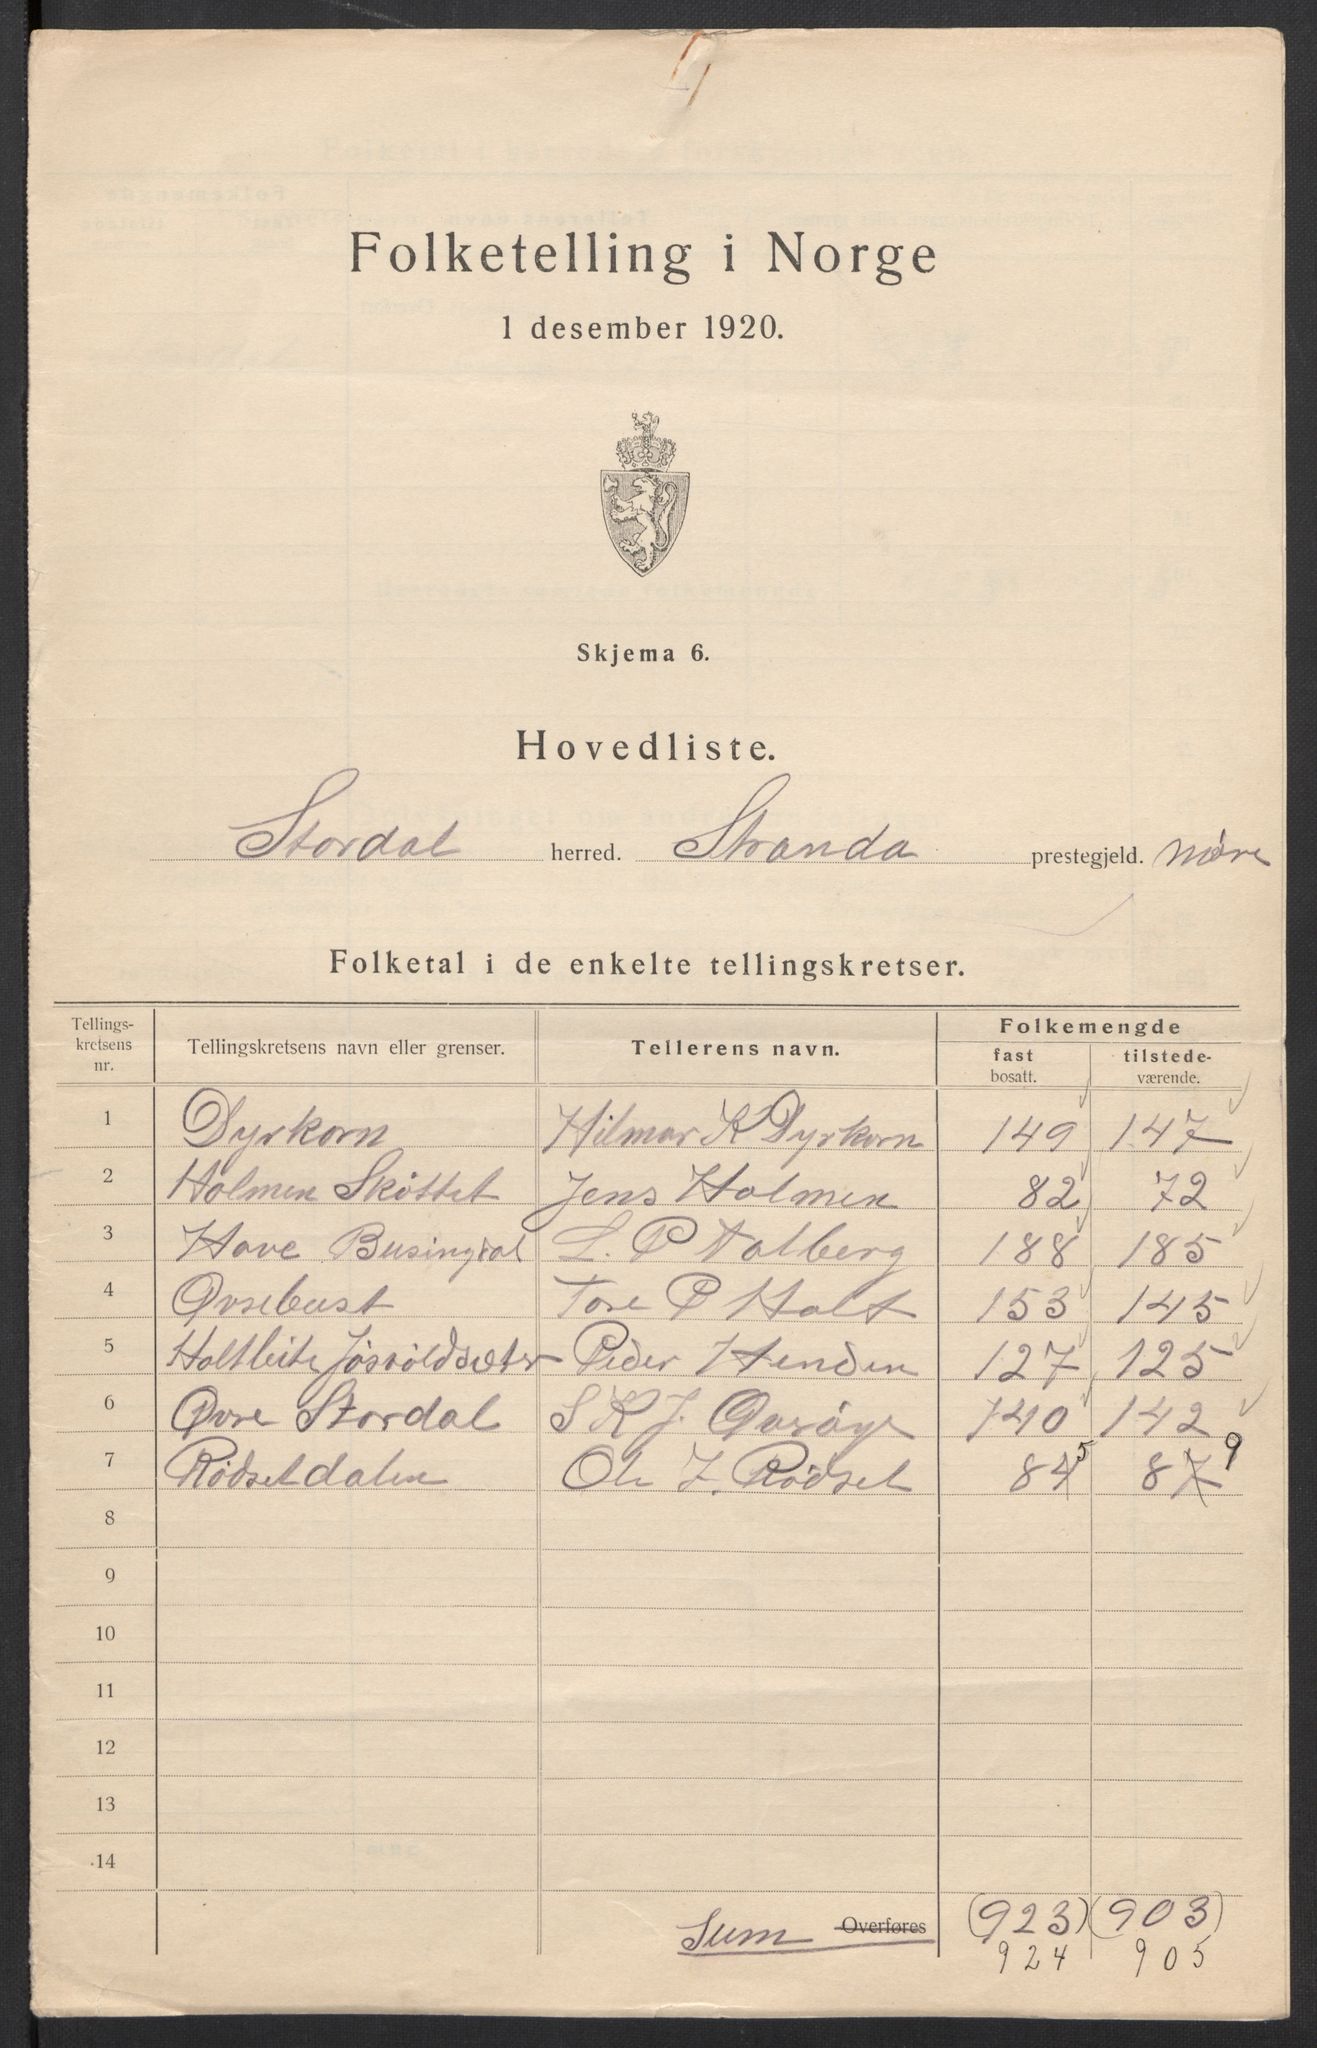 Folketelling i Norge
1 desember 1920.
Skjema 6.
Hovedliste.
Stordal herred. Stranda prestegjeld. Møre
Folketal i de enkelte tellingskretser.
Tellings-kretsens nr. Tellingskretsens navn eller grenser. Tellerens navn. Folkemengde
fast bosatt. tilstede-værende.
1 Dyrkorn Hilmar K Dyrkorn 149 147
2 Holmen Skøttet Jens Holmen 82 72
3 Hove Busingdal L. P Aalberg 188 185
4 Øvsebust Tore P Holt 153 145
5 Holtleite Jøsvoldsæter Peder Henden 127 125
6 Øvre Stordal S K J. 140 142
7 Rødsetdalen Ole Z. Rødset 84 5 87 9
8
9
10
11
12
13
14
Sum Overføres (923) (903)
924 905